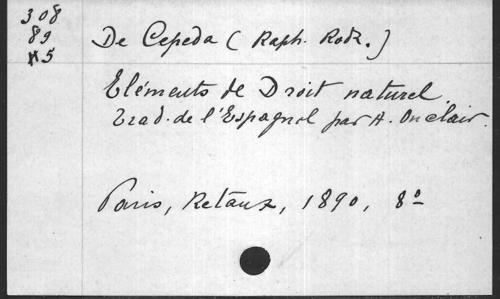 308
89
N5
De Cepeda (Raph. Rodr.)
Eléments de Droit naturel.
Trad. de l'Espagnol par A. Onclair.
Paris, Retaux, 1890, 8º